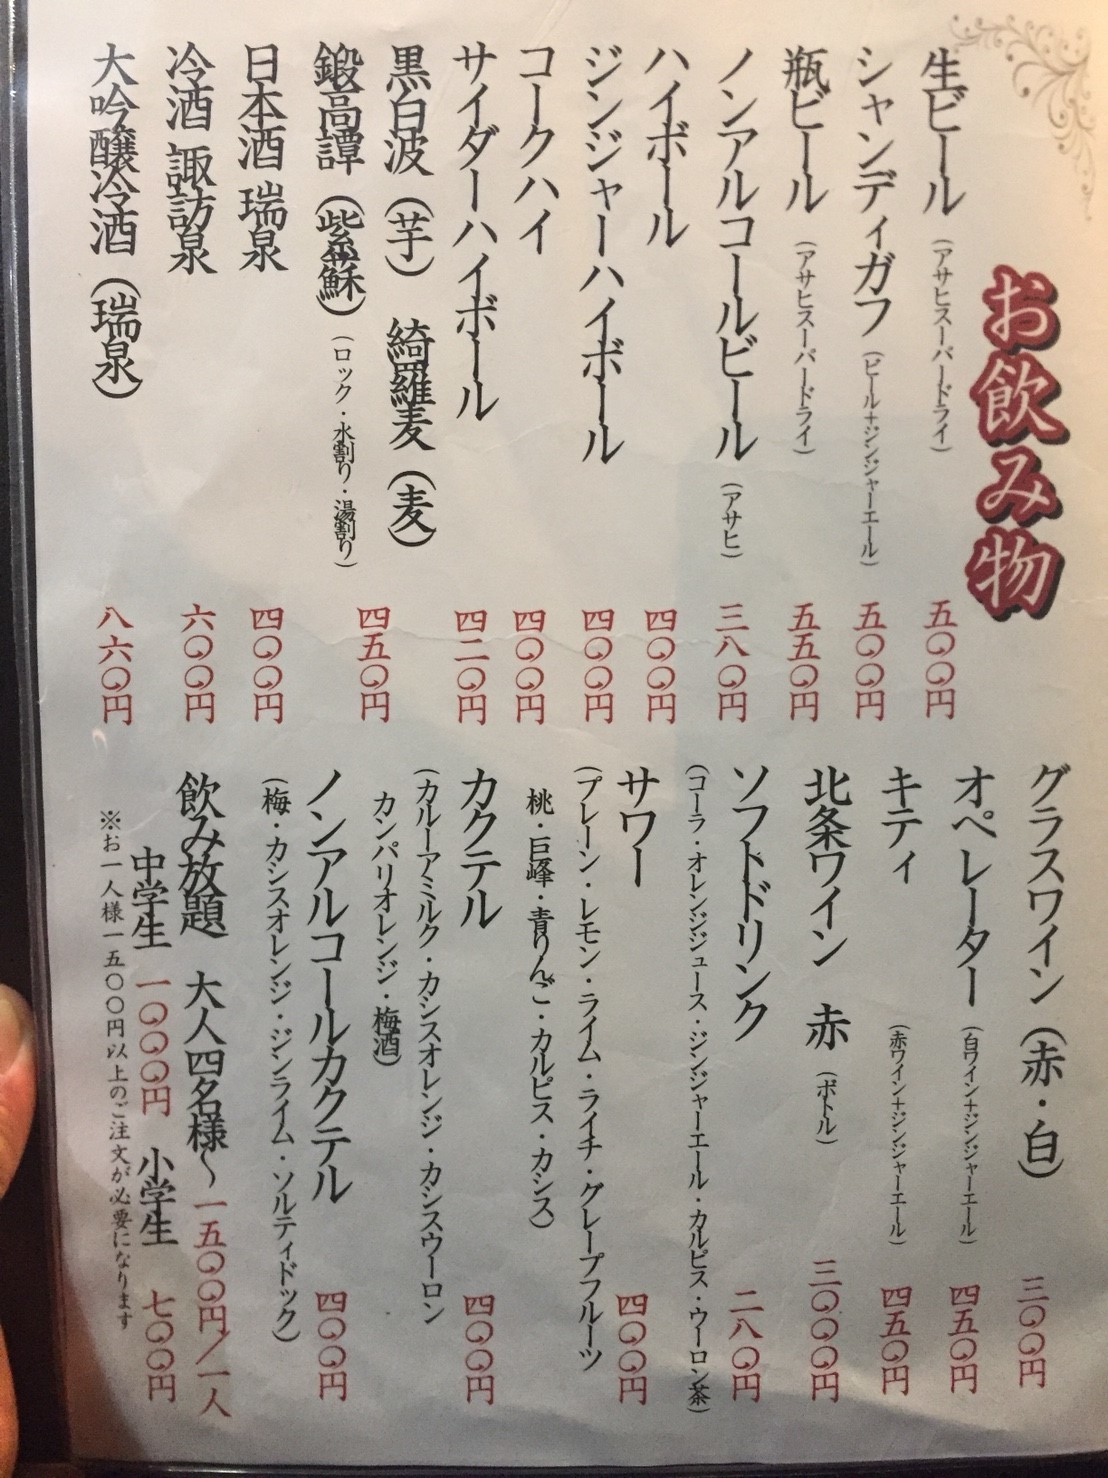 お飲み物
生ビール (アサヒスーパードライ) 五〇〇円
シャンディガフ (ビール+ジンジャーエール) 五〇〇円
瓶ビール (アサヒスーパードライ) 五五〇円
ノンアルコールビール (アサヒ) 三八〇円
ハイボール 四〇〇円
ジンジャーハイボール 四〇〇円
コークハイ 四〇〇円
サイダーハイボール 四二〇円
黒白波 (芋) 綺羅麦 (麦)
鍛高譚 (紫蘇) (ロック・水割り・湯割り) 四五〇円
日本酒 瑞泉 四〇〇円
冷酒 諏訪泉 六〇〇円
大吟醸冷酒 (瑞泉) 八六〇円
グラスワイン (赤・白) 三〇〇円
オペレーター (白ワイン+ジンジャーエール) 四五〇円
キティ (赤ワイン+ジンジャーエール) 四五〇円
北条ワイン 赤 (ボトル) 三〇〇〇円
ソフトドリンク 二八〇円
(コーラ・オレンジジュース・ジンジャーエール・カルピス・ウーロン茶)
サワー 四〇〇円
(プレーン・レモン・ライム・ライチ・グレープフルーツ
桃・巨峰・青りんご・カルピス・カシス)
カクテル 四〇〇円
(カルーアミルク・カシスオレンジ・カシスウーロン
カンパリオレンジ・梅酒)
ノンアルコールカクテル 四〇〇円
(梅・カシスオレンジ・ジンライム・ソルティドック)
飲み放題 大人四名様〜 一五〇〇円/一人
中学生 一〇〇〇円 小学生 七〇〇円
※お一人様一五〇〇円以上のご注文が必要になります